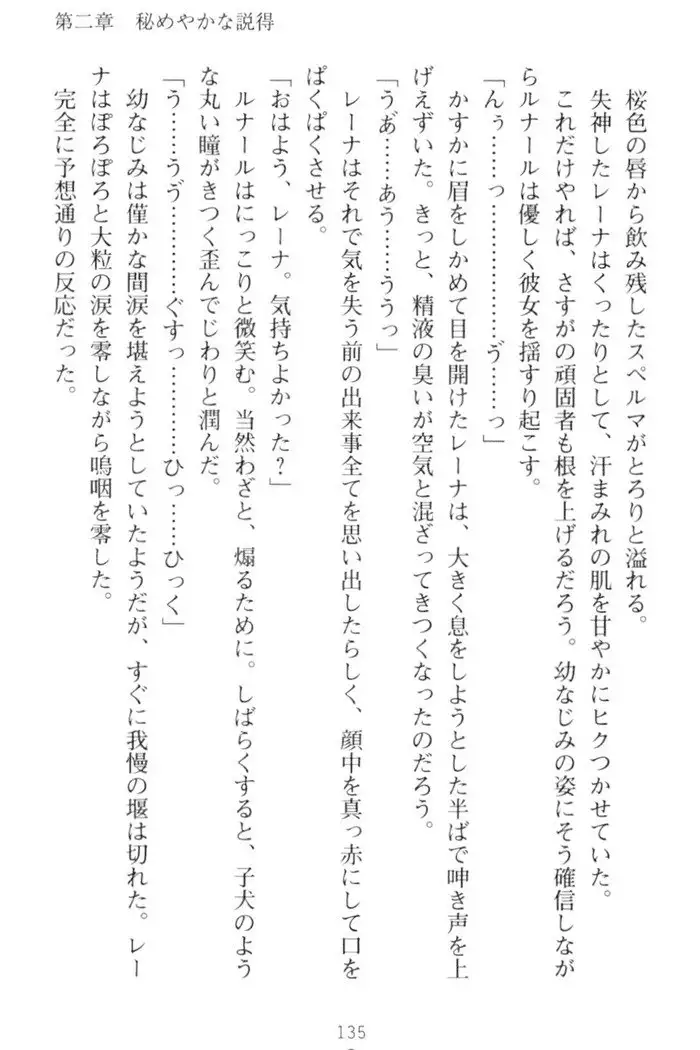 第二章　秘めやかな説得
桜色の唇から飲み残したスペルマがとろりと溢れる。
失神したレーナはくったりとして、汗まみれの肌を甘やかにヒクつかせていた。
これだけやれば、さすがの頑固者も根を上げるだろう。幼なじみの姿にそう確信しなが
らルナールは優しく彼女を揺すり起こす。
「んぅ……っ……………ゔ……っ」
かすかに眉をしかめて目を開けたレーナは、大きく息をしようとした半ばで呻き声を上
げえずいた。きっと、精液の臭いが空気と混ざってきつくなったのだろう。
「うあ゙……ぁう……ううっ」
レーナはそれで気を失う前の出来事全てを思い出したらしく、顔中を真っ赤にして口を
ぱくぱくさせる。
「おはよう、レーナ。気持ちよかった？」
ルナールはにっこりと微笑む。当然わざと、煽るために。しばらくすると、子犬のよう
な丸い瞳がきつく歪んでじわりと潤んだ。
「う……うゔ…………ぐすっ…………ひっ……ひっく」
幼なじみは僅かな間涙を堪えようとしていたようだが、すぐに我慢の堰は切れた。レー
ナはぽろぽろと大粒の涙を零しながら嗚咽を零した。
完全に予想通りの反応だった。
135